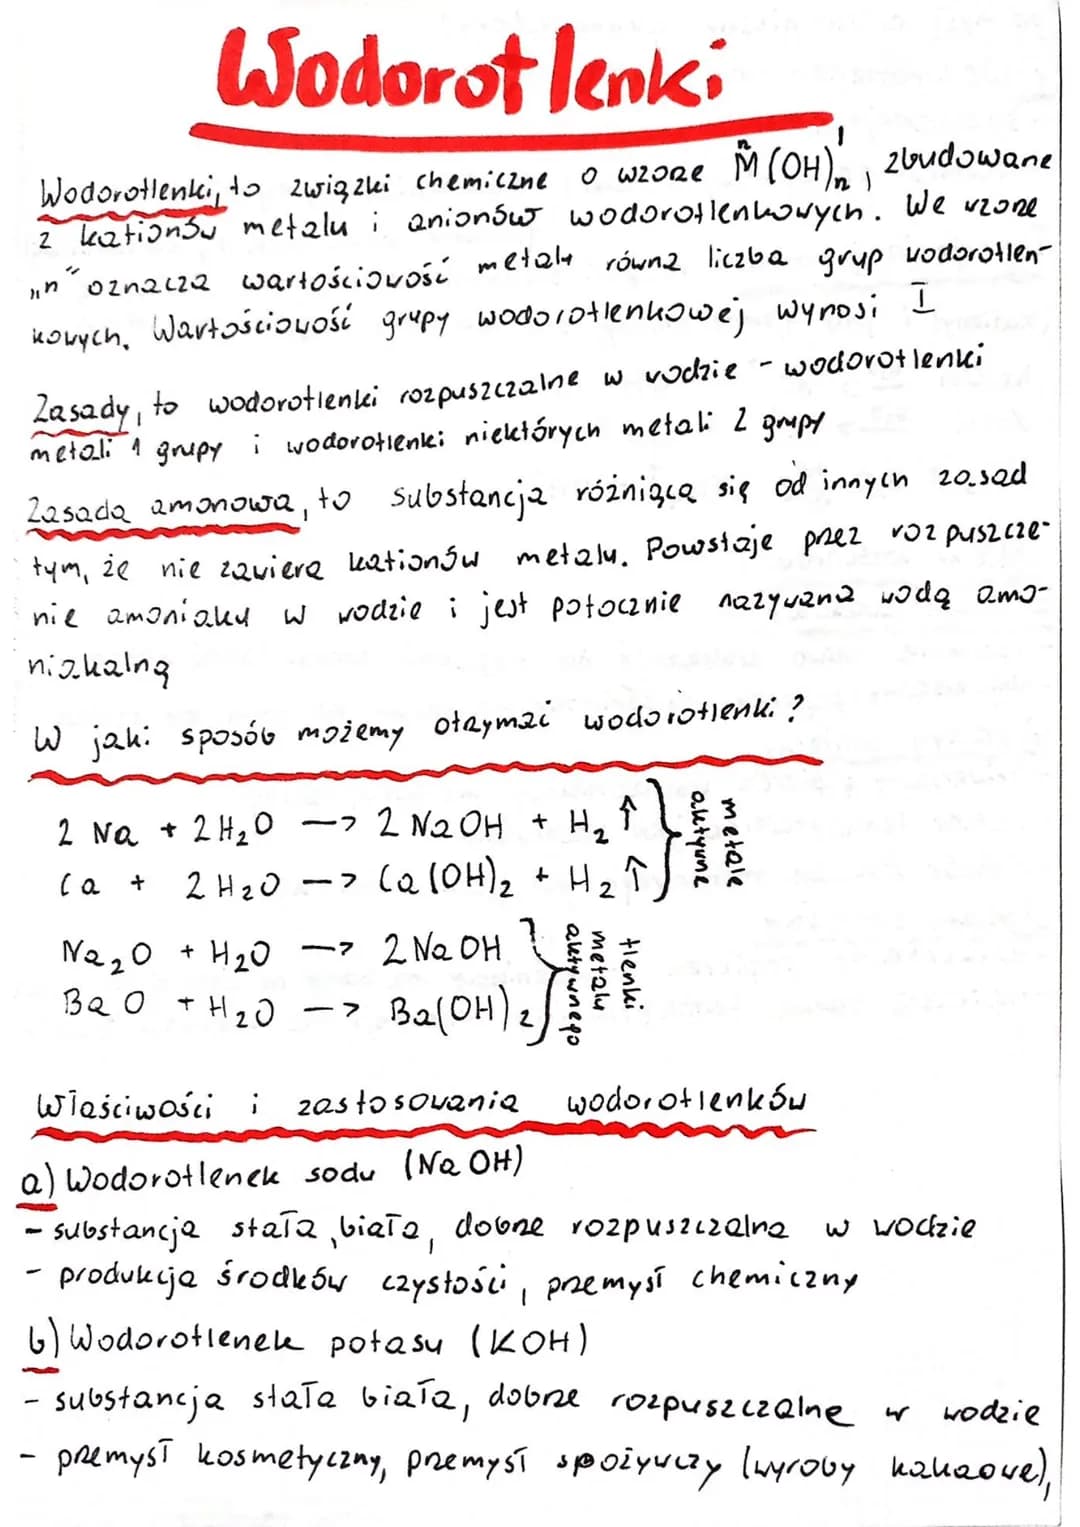 Wodorotlenki
Wodorotlenki, to związki chemiczne o wzorze M(OH)n, zbudowane
z kationów metalu i anionów wodorotlenkowych. We wzorze
„n" oznacza wartościowość metalu równa liczba grup wodorotlen-
kowych. Wartościowość grupy wodorotlenkowej wynosi I
Zasady, to wodorotlenki rozpuszczalne w wodzie - wodorotlenki
metali 1 grupy i wodorotlenki niektórych metali 2 grupy
Zasada amonowa, to substancja różniąca się od innych zasad
tym, że nie zawiera kationów metalu. Powstaje przez rozpuszcze-
nie amoniaku w wodzie i jest potocznie nazywana wodą amo-
niakalną
W jaki sposób możemy otrzymać wodorotlenki?
2 Na + 2 H₂O –> 2 NaOH + H₂ ↑ metale
Ca + 2 H₂O –> Ca(OH)₂ + H₂ ↑ aktywne
Na₂O + H₂O –> 2 NaOH tlenki metalu
BaO + H₂O –> Ba(OH)₂ aktywnego
Właściwości i zastosowania wodorotlenków
a) Wodorotlenek sodu (NaOH)
- substancja stała, biała, dobrze rozpuszczalna w wodzie
- produkcja środków czystości, przemysł chemiczny
b) Wodorotlenek potasu (KOH)
- substancja stała biała, dobrze rozpuszczalne w wodzie
- przemysł kosmetyczny, przemysł spożywczy (wyroby kakaowe),